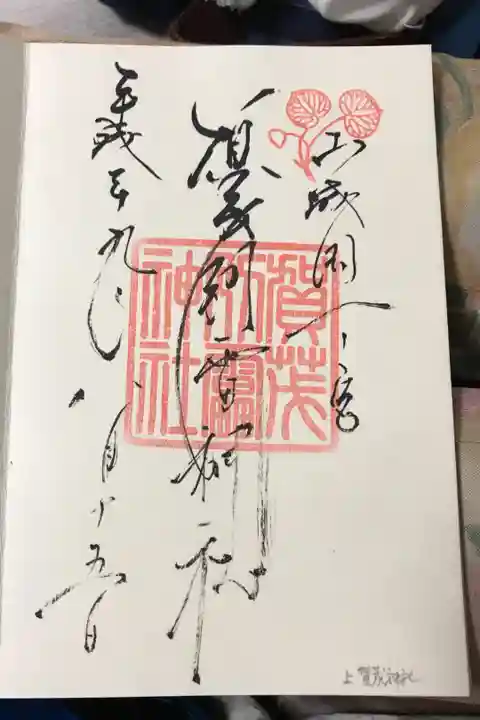 山城国一之宮
賀茂別雷神社
平成二十九年八月十五日
賀茂
別雷
神社
上賀茂神社